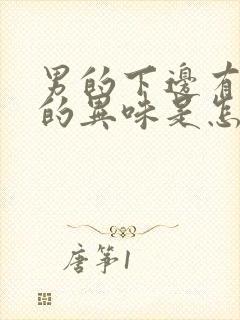 男的下邊有
的異味是怎
唐筝1